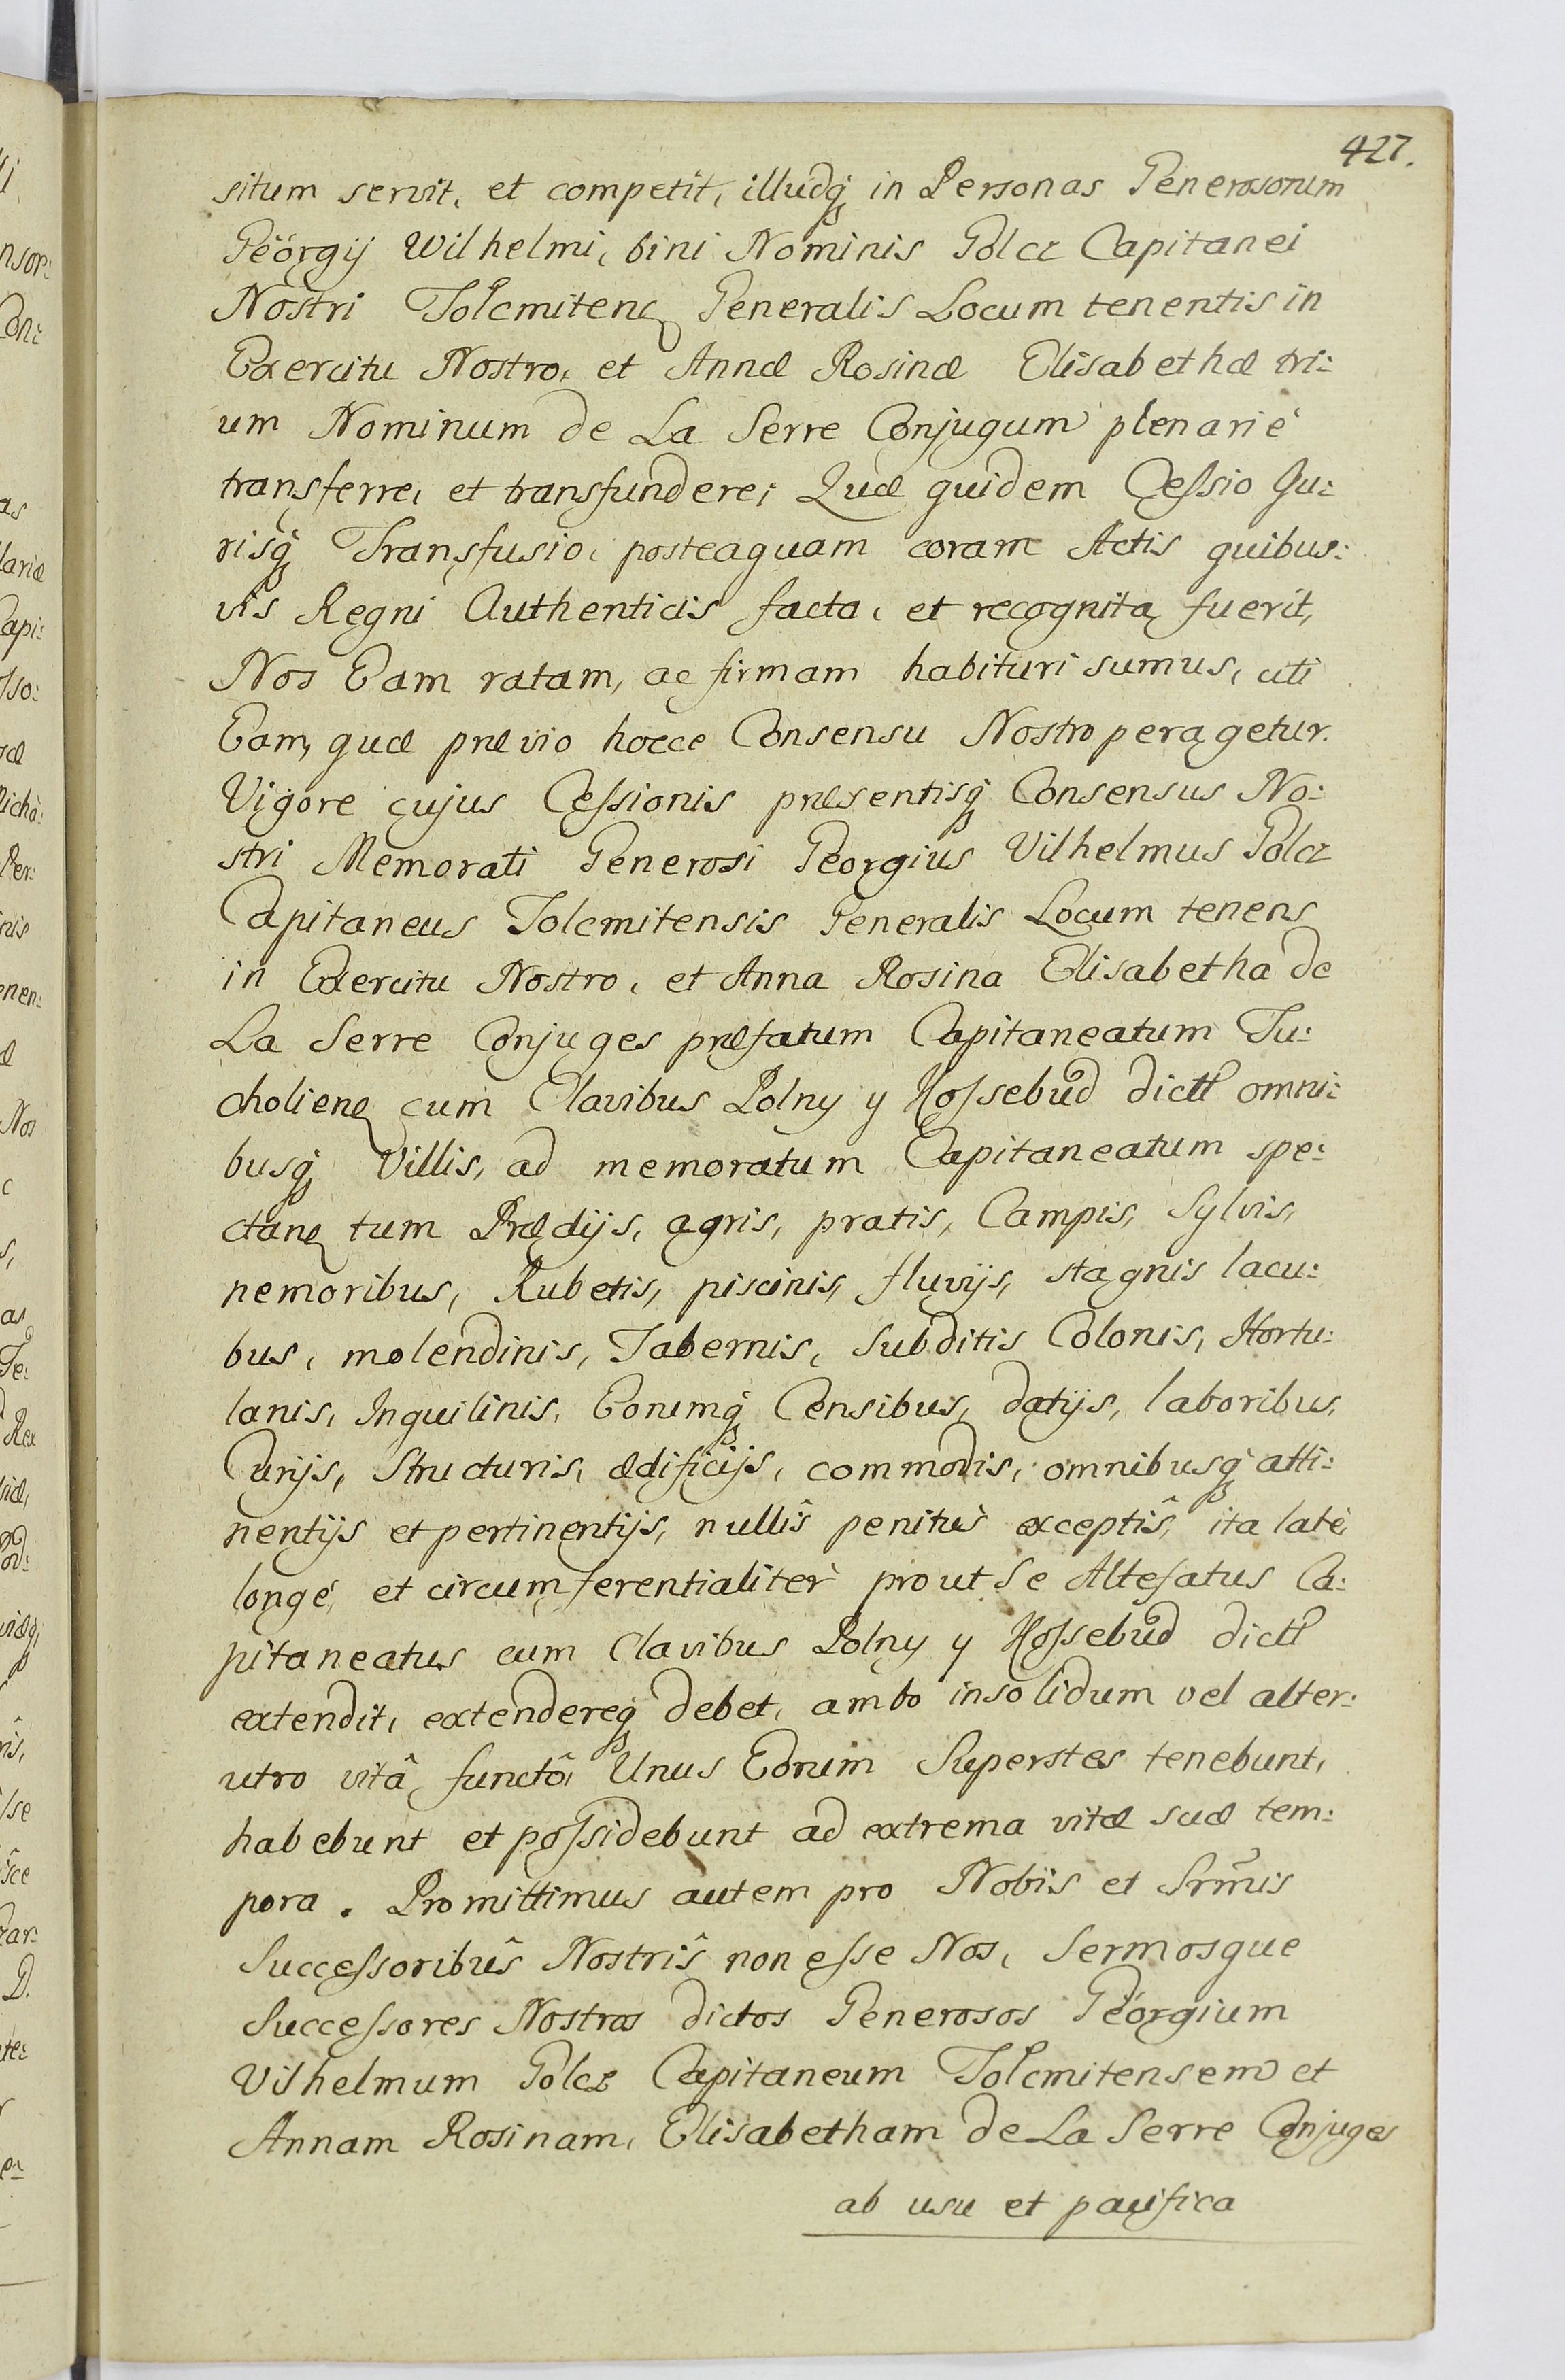 427.
situm servit, et competit, illudq; in Personas Generosorum
Géórgÿ Wilhelmi, bini Nominis Golcz Capitanei
Nostri Tolcmitenq Generalis Locum tenentis in
Exercitu Nostro, et Annæ Rosinæ Elisabethæ tri:
um Nominum de La Serre Conjugum plenariè
transferre, et transfundere; Quæ quidem Cessio Ju:
risq; Transfusio, posteaquam coram Actis quibus:
vis Regni Authenticis facta, et recognita fuerit,
Nos Eam ratam, ac firmam habituri sumus, uti
Eam, quæ prævio hocce Consensu Nostro peragetur.
Vigore cujus Cessionis præsentisq; Consensus No:
stri Memorati Generosi Georgius Vilhelmus Golcz
Capitaneus Tolcmitensis Generalis Locum tenens
in Exercitu Nostro, et Anna Rosina Elisabetha de
La Serre Conjuges præfatum Capitaneatum Tu:
cholienq cum Clavibus Polny y Hossebud dictt omni:
busq; Villis, ad memoratum Capitaneatum spe:
ctanq tum Prædijs, agris, pratis, Campis, Sylvis,
nemoribus, Rubetis, piscinis, fluvijs, stagnis lacu:
bus, molendinis, Tabernis, Subditis Colonis, Hortu:
lanis, Inquilinis, Eorumq; Censibus, datijs, laboribus,
Curijs, Structuris, ædificijs, commodis, omnibusq; atti:
nentijs et pertinentijs, nullîs penitùs exceptîs, ita latè,
longè, et circumferentialitèr prout Se Altefatus Ca:
pitaneatus cum Clavibus Polny y Hossebud dictt
extendit, extendereq; debet, ambo insolidum vel alter:
utro vitâ functô, Unus Eorum Superstes tenebunt,
habebunt et possidebunt ad extrema vitæ suæ tem:
pora. Promittimus autem pro Nobis et Srm̃is
Successoribûs Nostrîs non esse Nos, Sermosque
Successores Nostros dictos Generosos Géorgium
Vilhelmum Golcz Capitaneum Tolcmitensem et
Annam Rosinam, Elisabetham de La Serre Conjuges
ab usu et pacifica